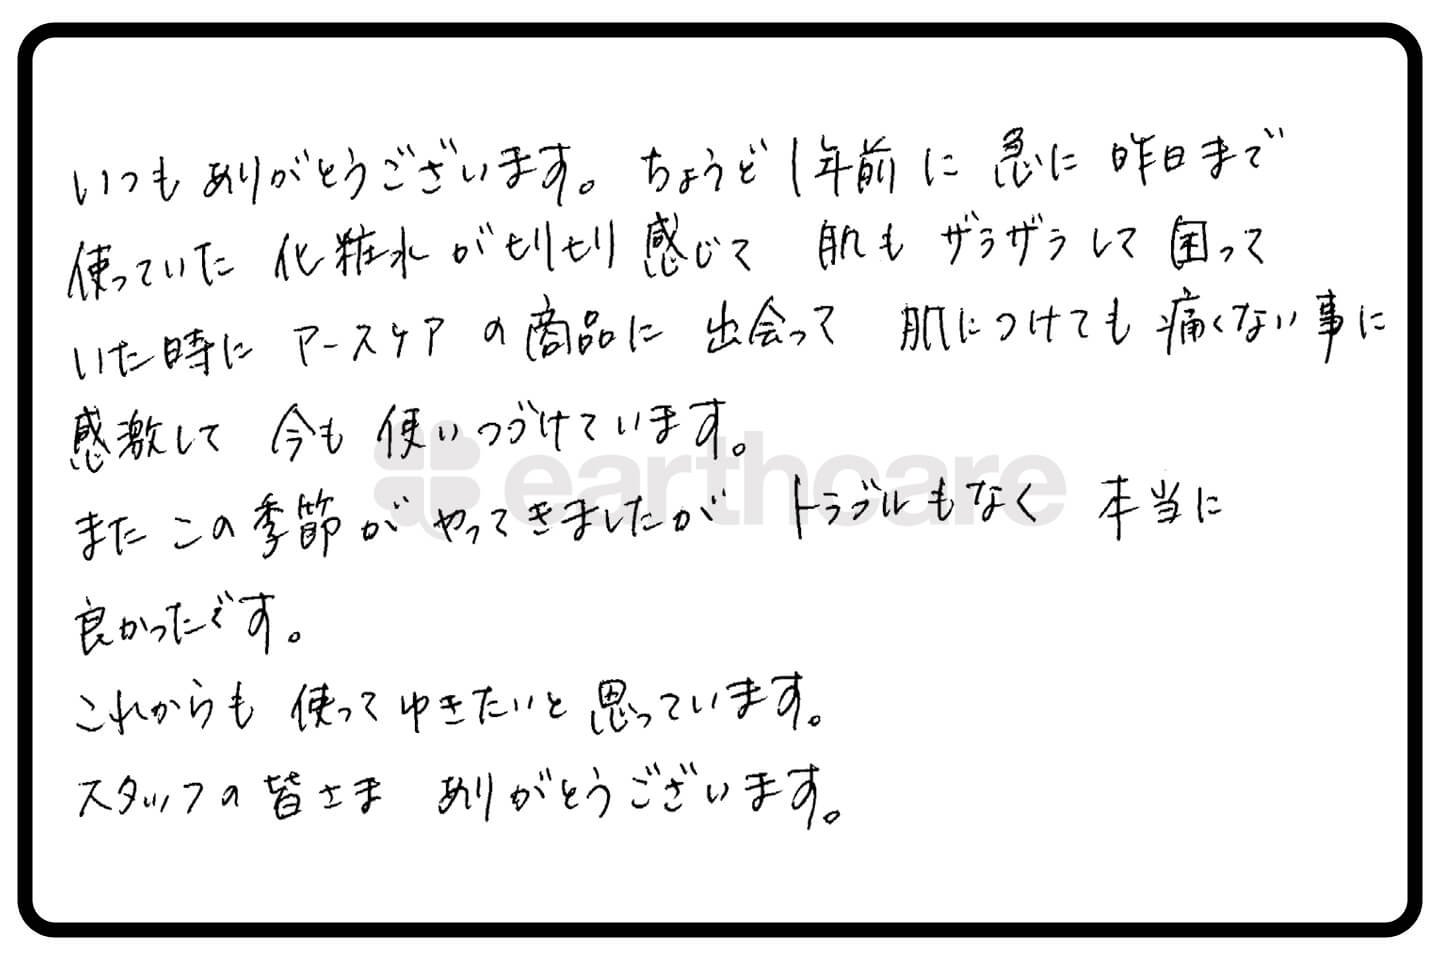 いつもありがとうございます。ちょうど1年前に急に昨日まで
使っていた 化粧水がセリセリ感じて 肌もザラザラして困って
いた時に アースケアの商品に出会って 肌につけても痛くない事に
感激して 今も使いつづけています。
earthcare
またこの季節がやってきましたが トラブルもなく 本当に
良かったです。
これからも使ってゆきたいと思っています。
スタッフの皆さま ありがとうございます。